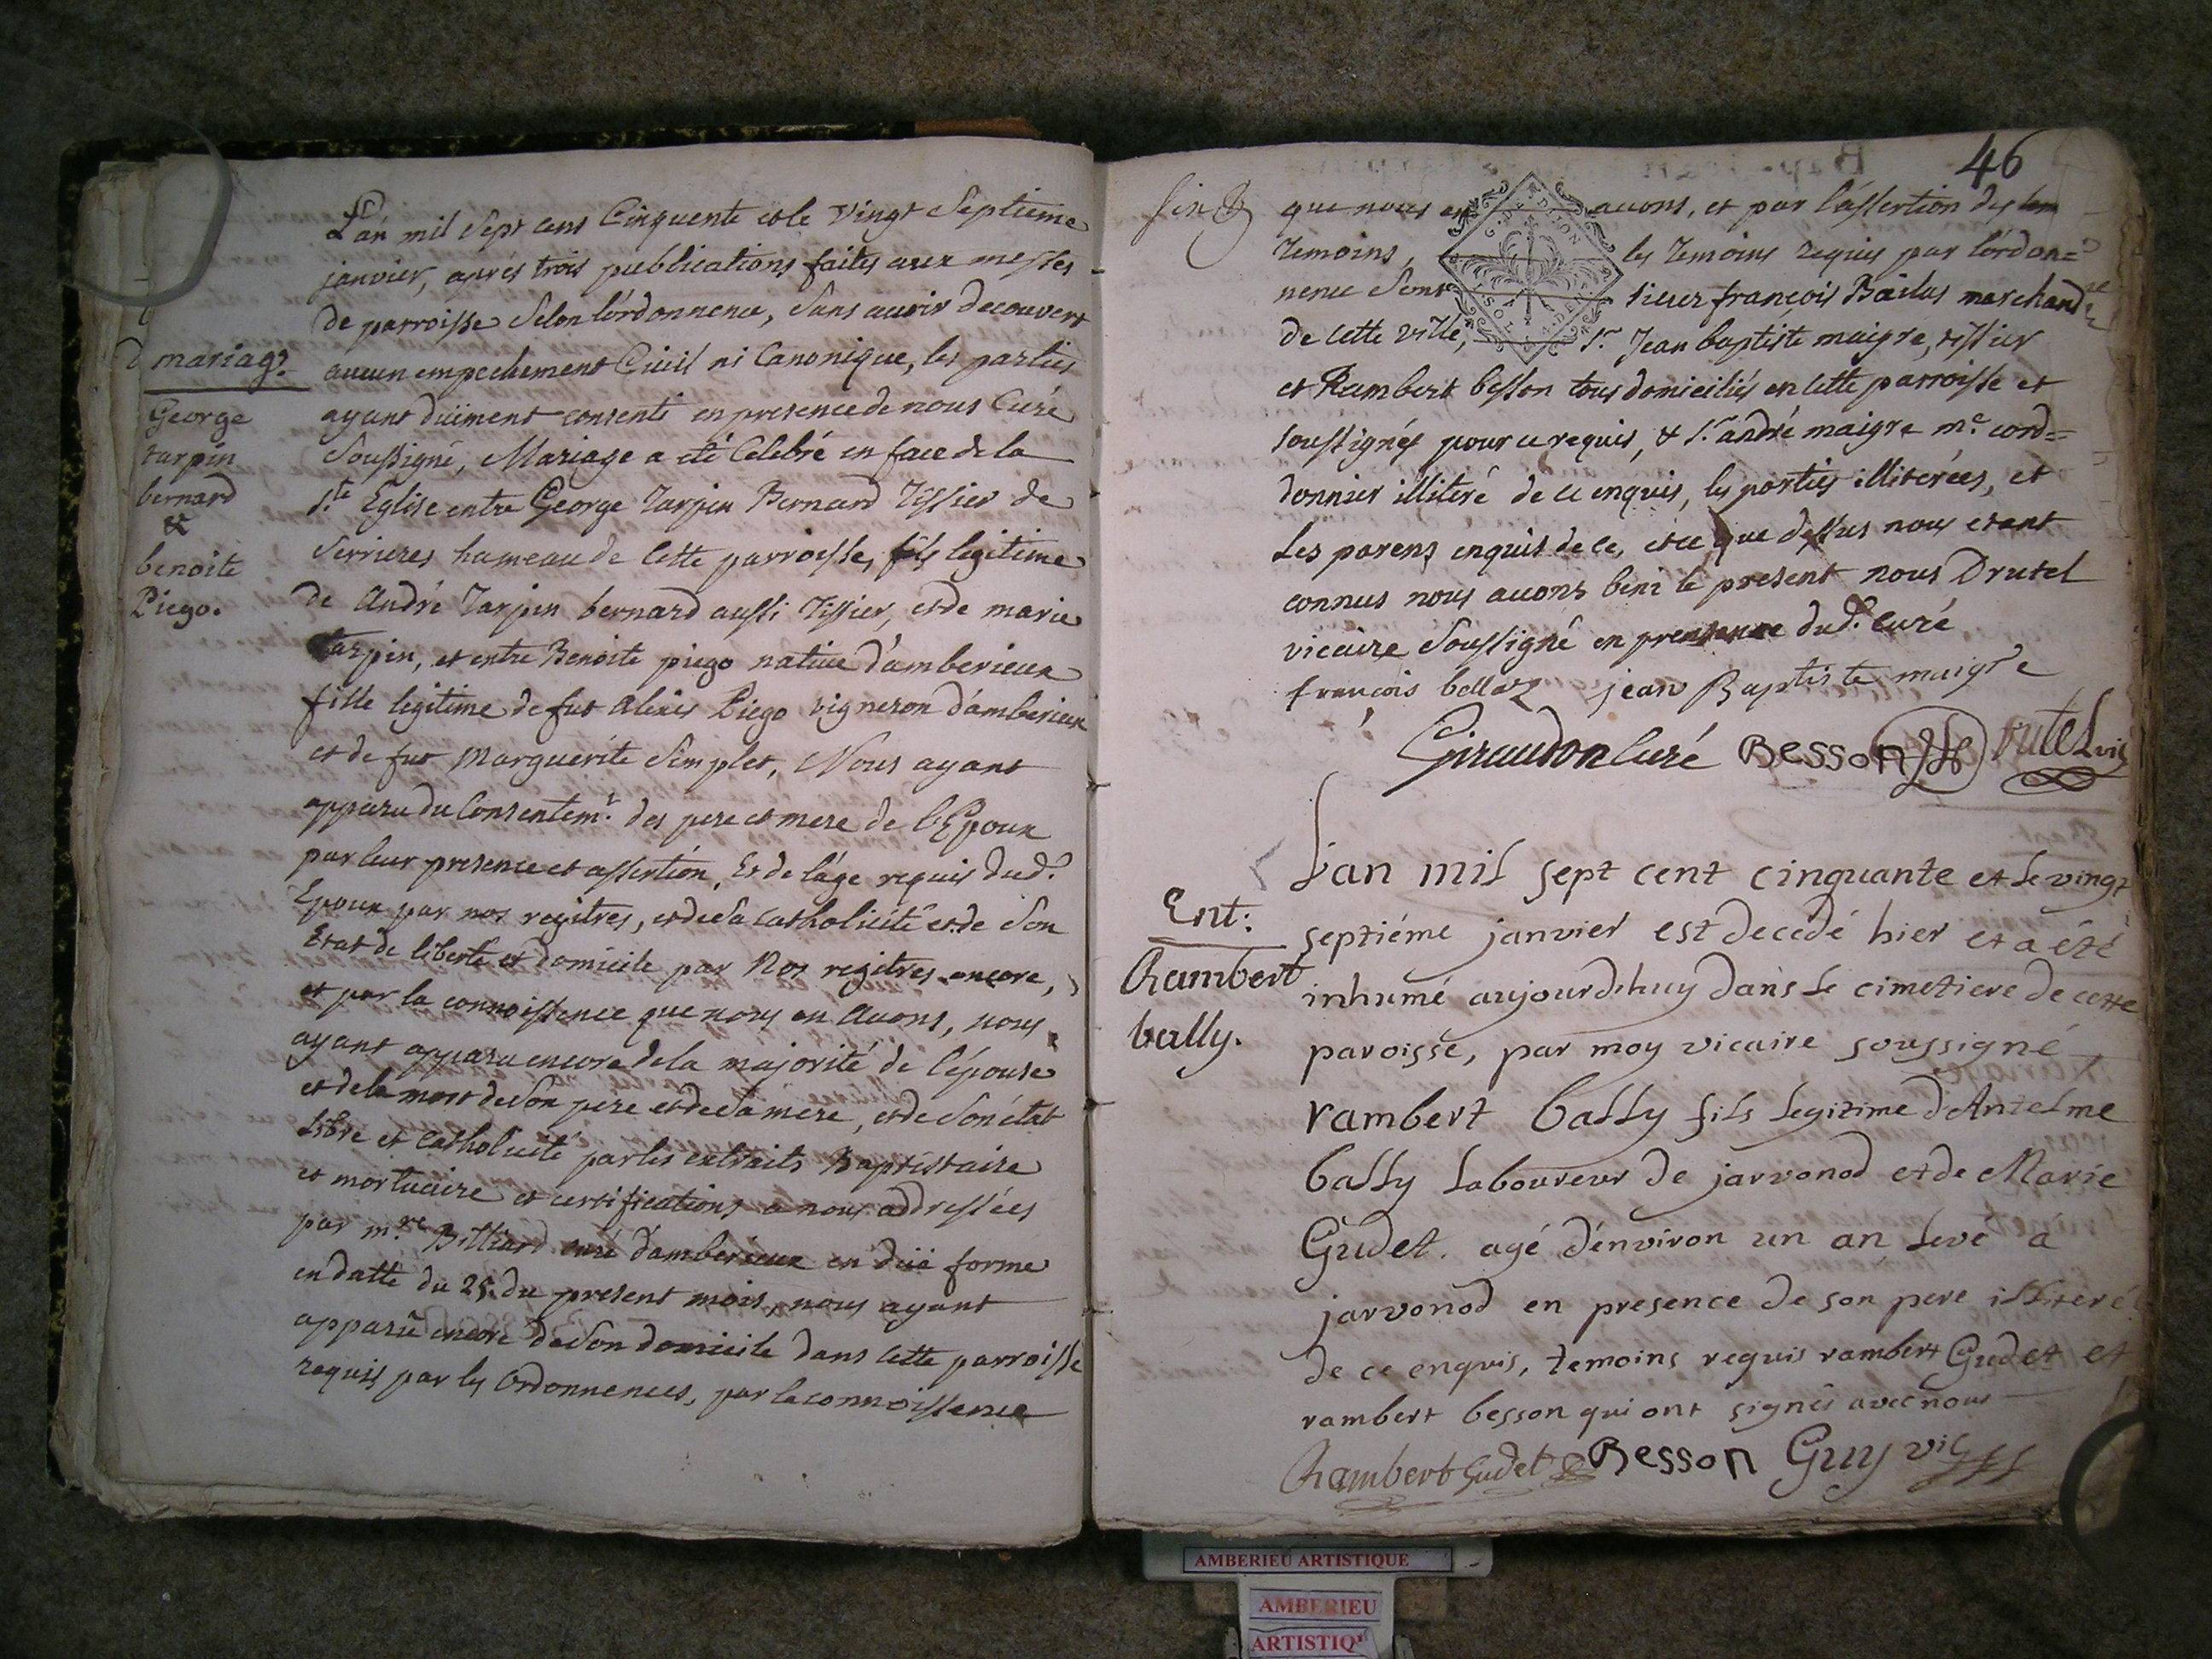 L'an mil sept cens Cinquente et le vingt Septieme
janvier, aprés trois publications faites aux messes
de parroisse Selon l'ordonnence, Sans avoir decouvert
aucun empechement Civil ni Canonique, les parties
ayant düement consenti en presence de nous Curé
Soussigné, Mariage a eté Celebré en face de la
Ste Eglise entre George Tarpin Bernard Tissier de
Serrieres hameau de Cette parroisse, fils legitime
de André Tarpin bernard aussi Tissier, et de marie
tarpin, et entre Benoite piego native d'amberieux
fille legitime de fut Alexis Piego vigneron d'amberieux
et de fut Marguerite Simplet, Nous ayant
apparu du Consentemt. des pere et mere de l'Epoux
par leur presence et assertion, Et de l'áge requis dud.
Epoux par nos regitres, et de Sa Catholicité et de Son
Etat de liberté et domicile par Nos regitres encore,
et par la connoissence que nous en Avons, nous
ayant apparu encore de la majorité de l'épouse
et de la mort de Son pere et de Sa mere, et de Son état
libre et Catholicité par les extraits Baptistaire
et mortuaire et certifications a nous addressées
par mre. Billiard curé d'amberieux en düe forme
en datte du 25. du present mois, nous ayant
apparû encore de Son domicile dans Cette parroisse
requis par les Ordonnences, par la connoissence
mariage.
George
tarpin
bernard
&
benoite
Piego.
46
que nous en avons, et par l'assertion des
temoins, les temoins requis par l'ordon=
nence Sont sieur françois marchand
de Cette ville, Sr. Jean baptiste maigre, tissier
et Rambert besson tous domiciliés en Cette parroisse et
soussignés pour ce requis, & Sr. andré maigre me. cord=
donnier illiteré de ce enquis, les parties illiterées, et
Les parens enquis de ce, et ce que dessus nous etant
connus nous avons beni le present nous Drutel
vicaire Soussigné en presence dud. Curé
françois jean Baptiste maigre
Giraudon Curé Besson Drutel vic
L'an mil sept cent cinquante et le vingt
septiéme janvier est decedé hier et a été
inhumé aujourd'huy dans le cimetiere de cette
paroisse, par moy vicaire soussigné
rambert bally fils legitime d'Antelme
bally laboureur de jarvonod et de Marie
Gudet. agé d'environ un an levé á
jarvonod en presence de son pere illiteré
de ce enquis, temoins requis rambert Gudet et
rambert besson qui ont signés avec nous
Rambert Gudet Besson Guy vic
Ent:
Rambert
bally.
AMBERIEU ARTISTIQUE
AMBERIEU
ARTISTIQ